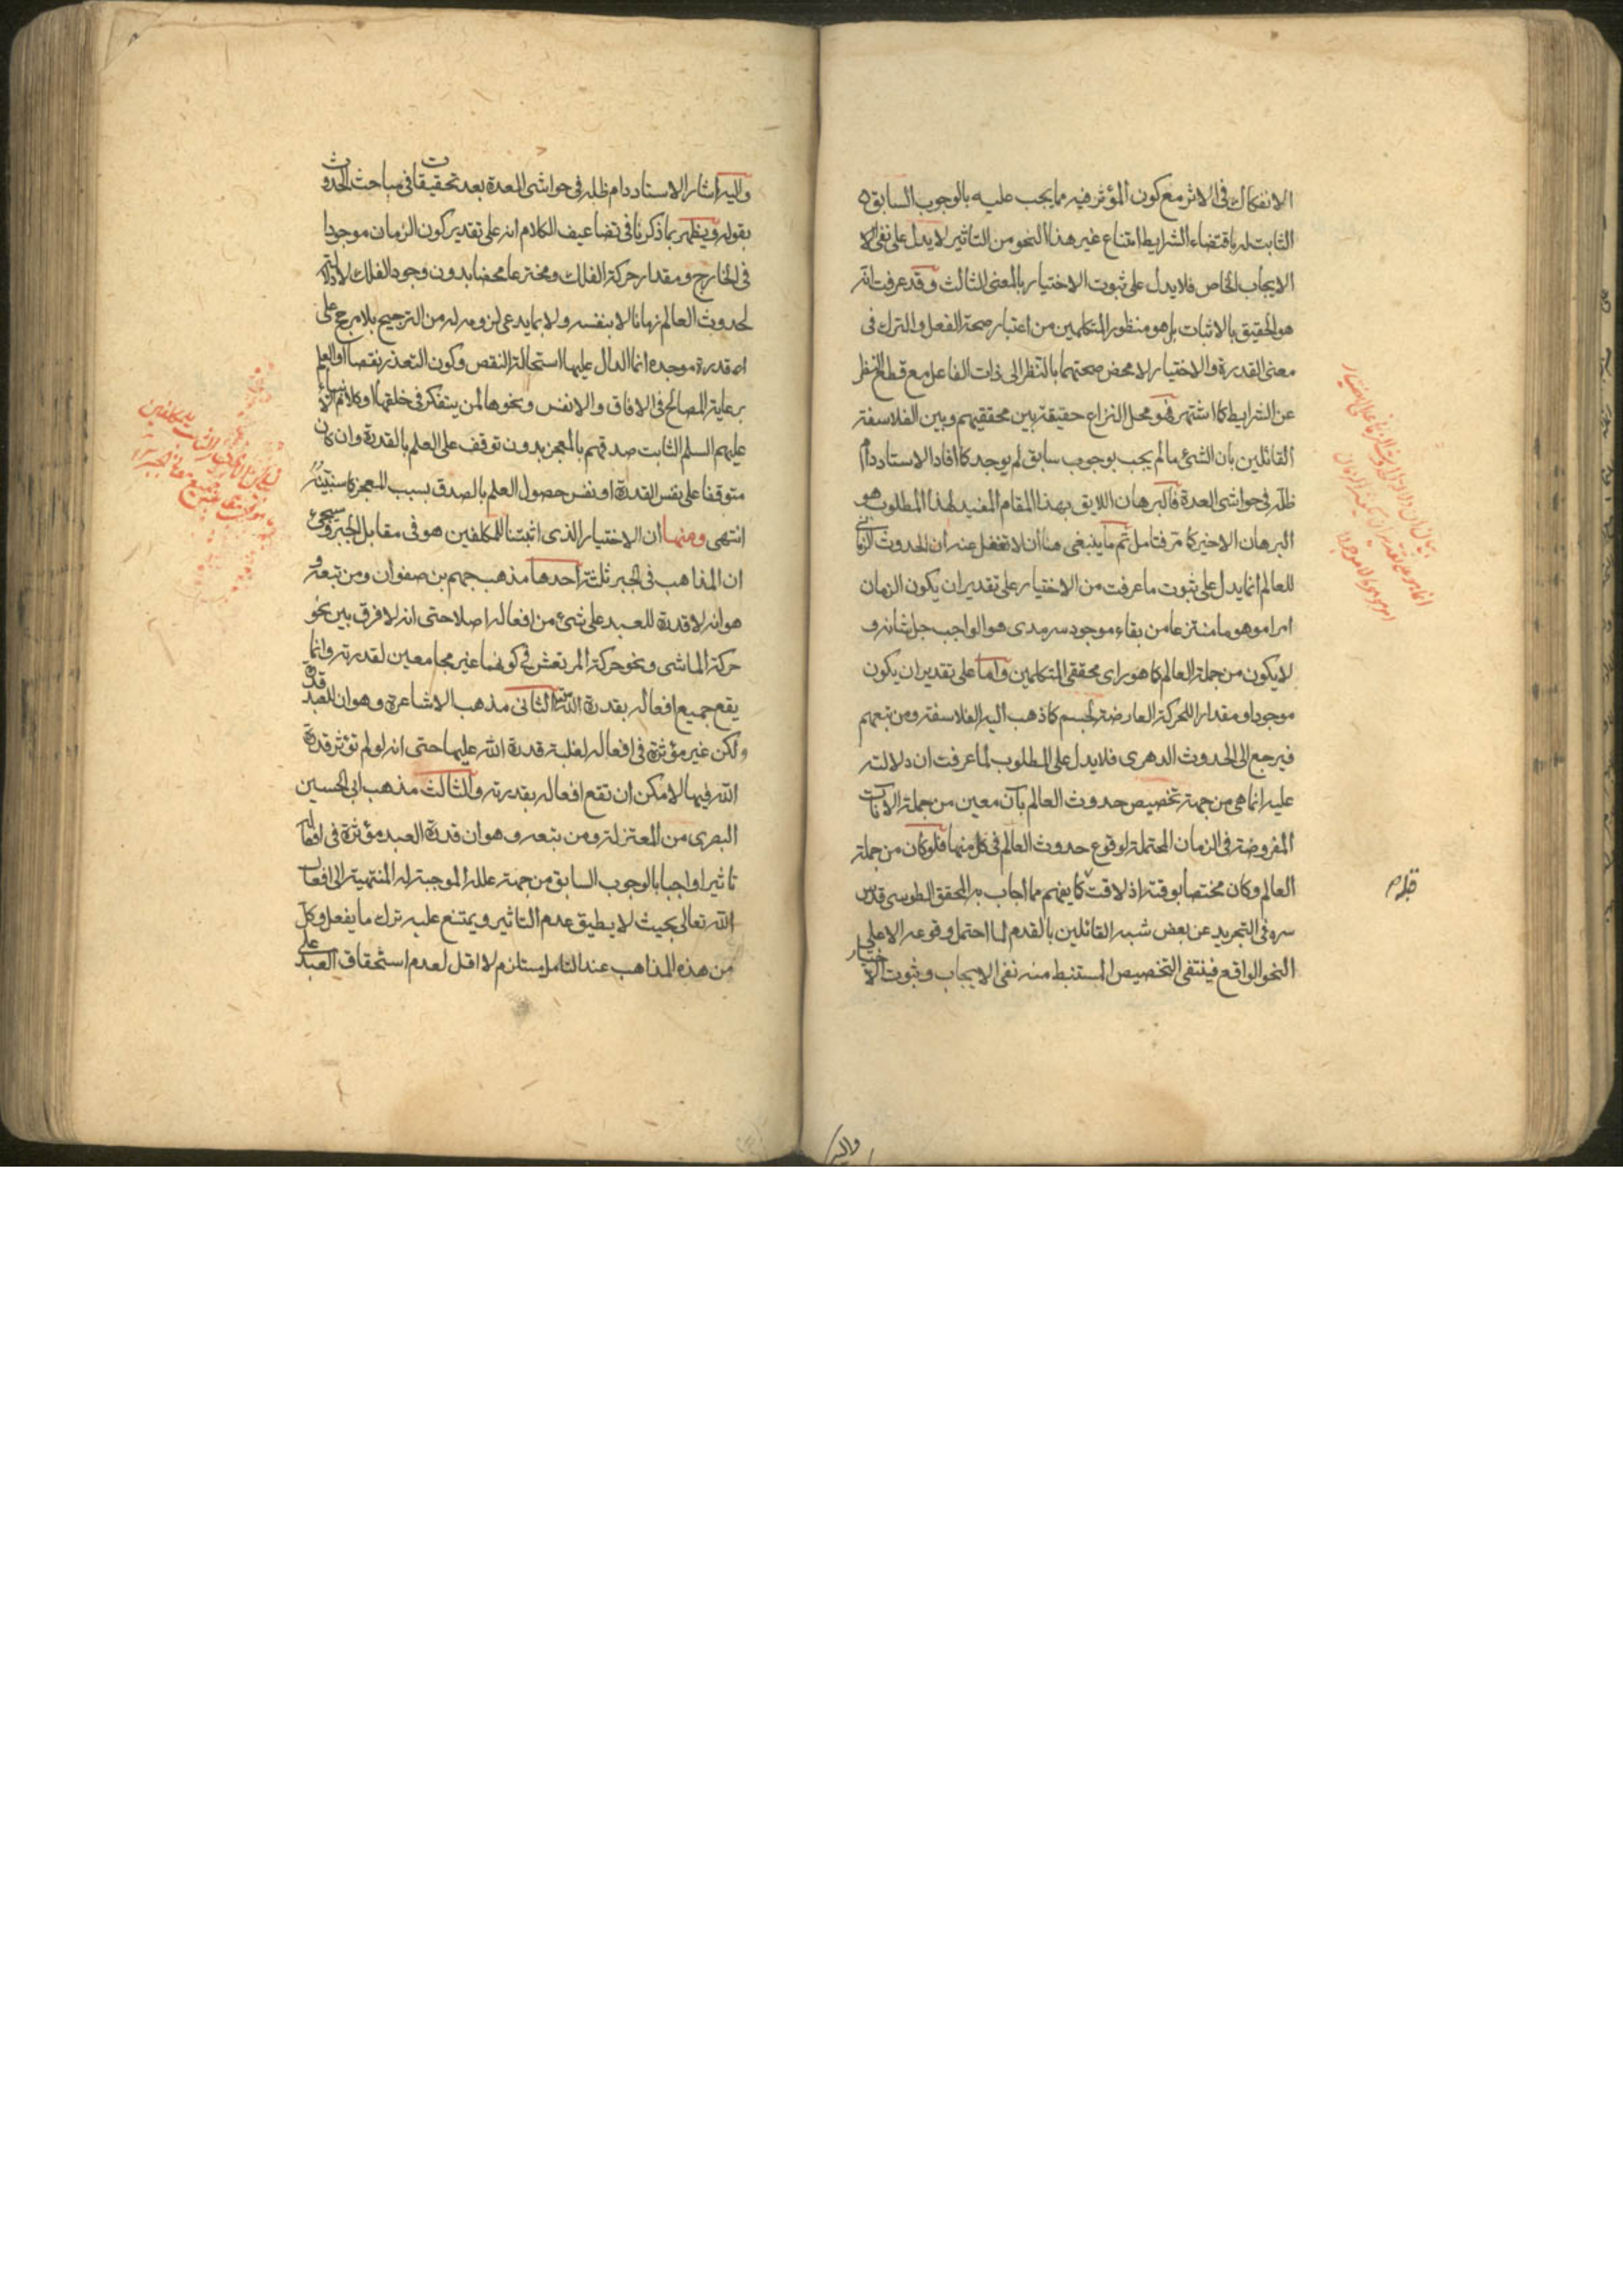 الانفكاك في الاثر مع كون المؤثر فيه مما يجب عليه بالوجوب السابق
الثابت له باقتضاء الشرايط امتناع غير هذا النحو من التاثير لا يدل على نفى
الايجاب الخاص فلا يدل على ثبوت الاختيار بالمعنى الثالث وقد عرفت انه
هو الحقيق بالاثبات بل هو منظور المتكلمين من اعتبار صحة الفعل والترك فى
معنى القدرة والاختيار لا محض صحتهما بالنظر الى ذات الفاعل مع قطع النظر
عن الشرايط كما اشتهر فهو محل النزاع حقيقة بين محققيهم وبين الفلاسفة
القائلين بان الشئ ما لم يجب بوجوب سابق لم يوجد كما افاد الاستاد دام
ظله فى حواشى العدة فالبرهان اللايق بهذا المقام المفيد لهذا المطلوب هو
البرهان الاخير كما مر فتامل ثم ما ينبغى هنا ان لا تغفل عنه ان الحدوث الزمانى
للعالم انما يدل على ثبوت ما عرفت من الاختيار على تقدير ان يكون الزمان
امرا موهوما منتزعا من بقاء موجود سرمدى هو الواجب جل شانه و
لا يكون من جملة العالم كما هو راى محققى المتكلمين واما على تقدير ان يكون
موجودا ومقدارا للحركة العارضة لجسم كما ذهب اليه الفلاسفة ومن تبعهم
فيرجع الى الحدوث الدهرى فلا يدل على المطلوب لما عرفت ان دلالته
عليه انما هى من جهة تخصيص حدوث العالم بآن معين من جملة الآنات
المفروضة فى الزمان المحتملة لوقوع حدوث العالم فى كل منها فلو كان من جملة
العالم وكان مختصا بوقته اذ لا وقت كما يفهم مما اجاب به المحقق الطوسى قدس
سره فى التجريد عن بعض شبه القائلين بالقدم لما احتمل وقوعه الا على
النحو الواقع فينتفى التخصيص المستنبط منه نفى الايجاب وثبوت الاختيار
واليه
واليه اشار الاستاد دام ظله فى حواشى العدة بعد تحقيقات فى مباحث الحدوث
بقوله ويظهر بما ذكرنا فى تضاعيف الكلام انه على تقدير كون الزمان موجودا
فى الخارج ومقدار حركة الفلك ومخترعا محضا بدون وجود الفلك لا دلالة
لحدوث العالم زمانا لا بنفسه ولا بما يدعى لزومه له من الترجيح بلا مرجح على
قدرة موجده انما الدال عليها استحالة النقص وكون التعذر نقصا او العلم
برعاية المصالح فى الافاق والانفس ونحوها لمن يتفكر فى خلقها او كلام الانبياء
عليهم السلم الثابت صدقهم بالمعجز بدون توقف على العلم بالقدرة وان كان
متوقفا على نفس القدرة او نفس حصول العلم بالصدق بسبب المعجز كما سنبينه
انتهى ومنها ان الاختيار الذى اثبتنا للمكلفين هو فى مقابل الجبر وسيجئ
ان المذاهب فى الجبر ثلثة احدها مذهب جهم بن صفوان ومن تبعه و
هو انه لا قدرة للعبد على شئ من افعاله اصلا حتى انه لا فرق بين نحو
حركة الماشى ونحو حركة المرتعش فى كونهما غير مجامعين لقدرته وانما
يقع جميع افعاله بقدرة الله الثانى مذهب الاشاعرة وهو ان للعبد قدرة
ولكن غير مؤثرة فى افعاله لغلبة قدرة الله عليها حتى انه لو لم تؤثر قدرة
الله فيها لامكن ان تقع افعاله بقدرته والثالث مذهب ابى الحسين
البصرى من المعتزلة ومن تبعه وهو ان قدرة العبد مؤثرة فى افعاله
تاثيرا واجبا بالوجوب السابق من جهة علله الموجبة له المنتهية الى افعال
الله تعالى بحيث لا يطيق عدم التاثير ويمتنع عليه ترك ما يفعل وكل
من هذه المذاهب عند التامل مستلزم لا اقل لعدم استحقاق العبد على